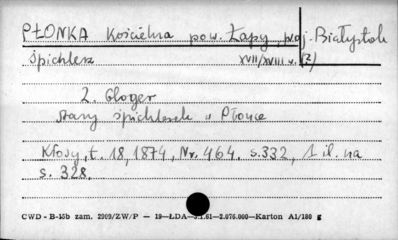 PŁONKA Kościelna pow. Łapy, woj. Białystok
Śpichlerz XVII/XVIII w. (?)
Z. Gloger
stary śpichlerzek w Płonce
Kłosy, t. 18, 1874, Nr. 464, s. 332, 1 il. na
s. 328.
CWD - B-15b zam. 2909/ZW/P — 19—ŁDA—3.1.61—2.076.000—Karton A1/180 g